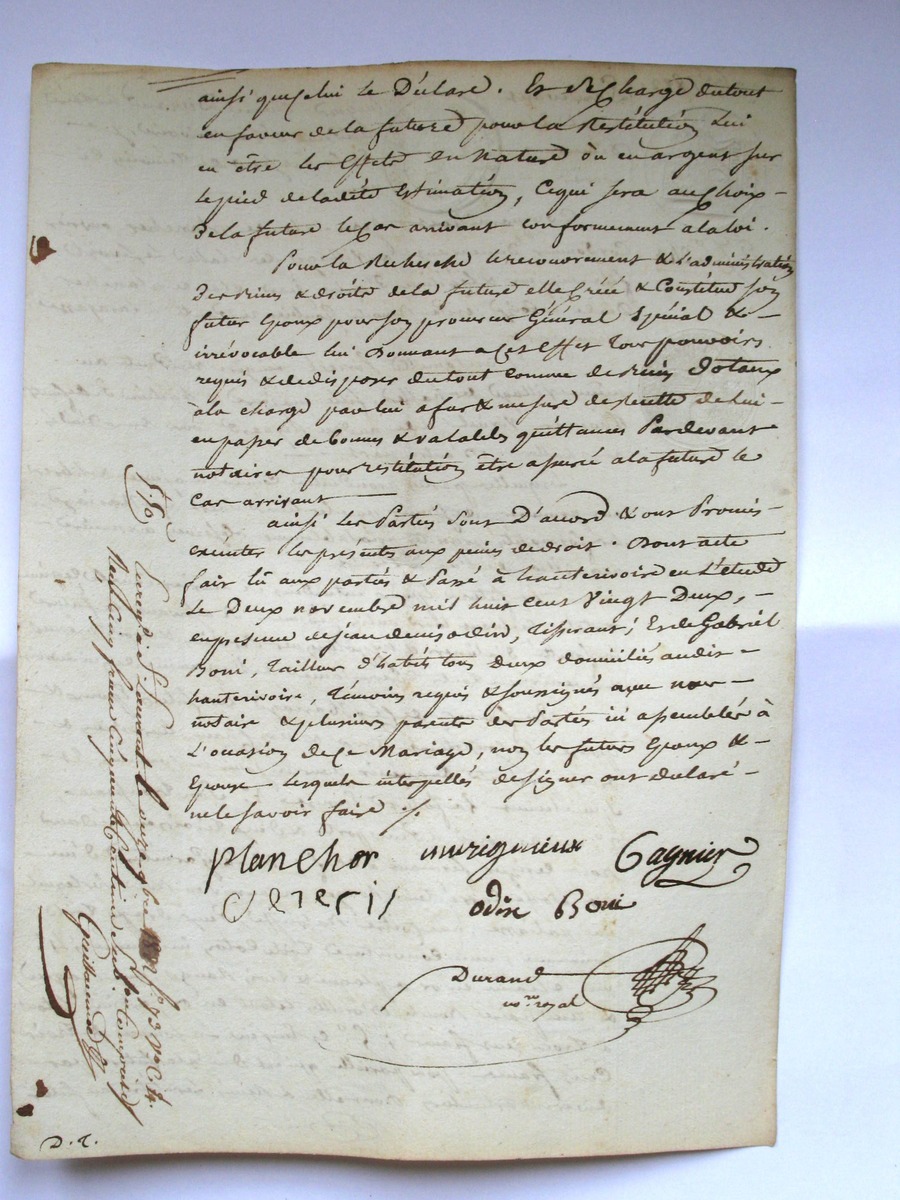 ainsi que lui le Déclare. Et se Charge du tout
en faveur de la future pour la Restitution lui
en être les Effets en Nature ou en argent sur
le pied de ladite Estimation, Ce qui sera au Choix
de la future le Cas arrivant conformement a la loi.
Pour la Recherche le recouvrement & l'administration
des biens & droits de la future elle Créée & Constitue son
futur Epoux pour son procureur Général Spécial &
irrévocable lui Donnant a Cet Effet Tous pouvoirs
requis & de disposer du tout Comme de biens dotaux
à la charge par lui a fur & mesure de recette de lui
en passer de bonnes & valables quittances Pardevant
notaires pour restitution être assurée a la future le
Cas arrivant
ainsi les Parties sont D'accord & ont Promis
exécuter les présentes aux peines de droit. Dont acte
fait lû aux parties & Passé à hauterivoire en L'étude
Le Deux novembre mil huit cent Vingt Deux,
en presence de jean denis odin, Tisserant, Et de Gabriel
Boni, Tailleur d'habits tous deux domiciliés audit
hauterivoire, Témoins requis & soussignés avec nous
notaire & plusieurs parents des Parties ici assemblés à
L'occasion de Ce Mariage, non les futurs Epoux &
Epouse lesquels interpellés de signer ont déclaré
ne le savoir faire ./.
planchor murigneux Gagnier
odin Boni
Durand
no.re royal
Enreg.é à S.t Laurent le douze 9bre 18 f.o 73 V.o C. 4.
Reçu Cinq francs Cinquante Centimes Sub.on Comprise
Guillaume
D. T.